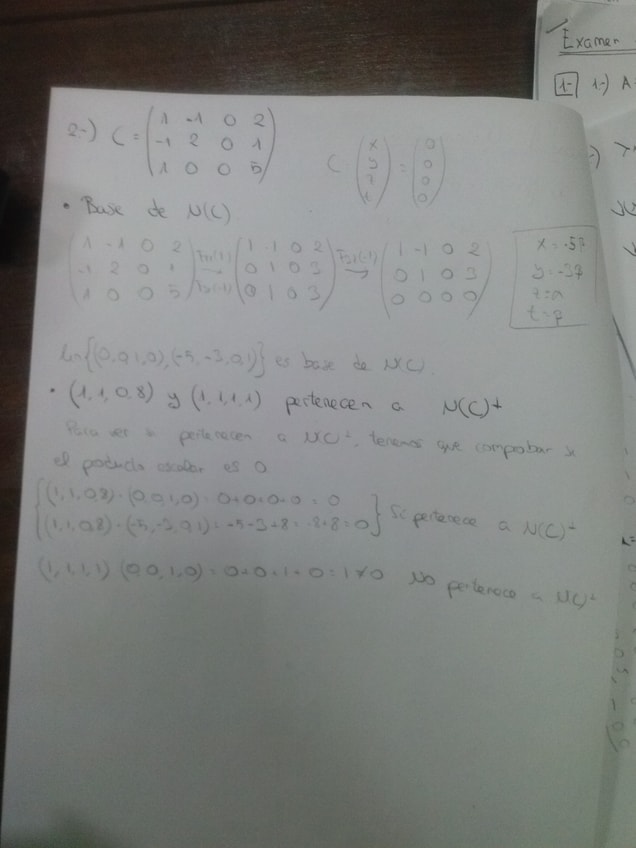 Examen
1-) 1-) A
2-) C = (1 -1 0 2
-1 2 0 1
1 0 0 5)
C (x y z t) = (0 0 0 0)
• Base de N(C)
(1 -1 0 2
-1 2 0 1
1 0 0 5) F21(1) F31(-1) → (1 -1 0 2
0 1 0 3
0 1 0 3) F32(-1) → (1 -1 0 2
0 1 0 3
0 0 0 0)
x = -5β
y = -3β
z = α
t = β
lin{(0,0,1,0),(-5,-3,0,1)} es base de N(C).
• (1,1,0,8) y (1,1,1,1) pertenecen a N(C)⊥
Para ver si pertenecen a N(C)⊥, tenemos que comprobar si
el producto escalar es 0
(1,1,0,8)·(0,0,1,0) = 0+0+0+0 = 0
(1,1,0,8)·(-5,-3,0,1) = -5-3+8 = -8+8 = 0} Si pertenece a N(C)⊥
(1,1,1,1)·(0,0,1,0) = 0+0+1+0 = 1 ≠ 0 No pertenece a N(C)⊥